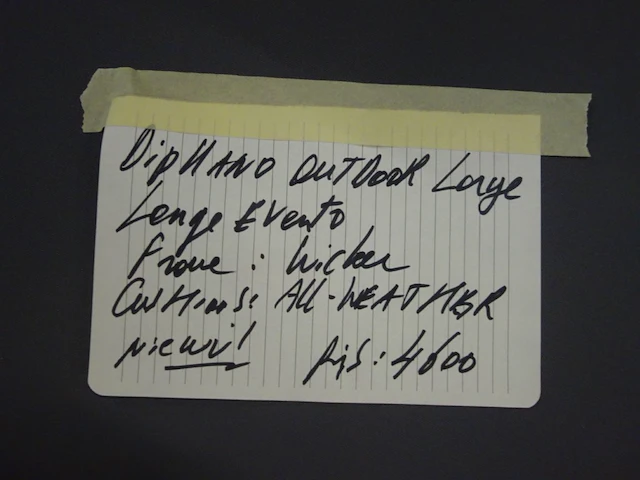 DipHANO OUTDOOR Large
Lenge Evento
Frame : Wicker
Cushions: All-WEATHER
Nieuw!
Prijs: 4600